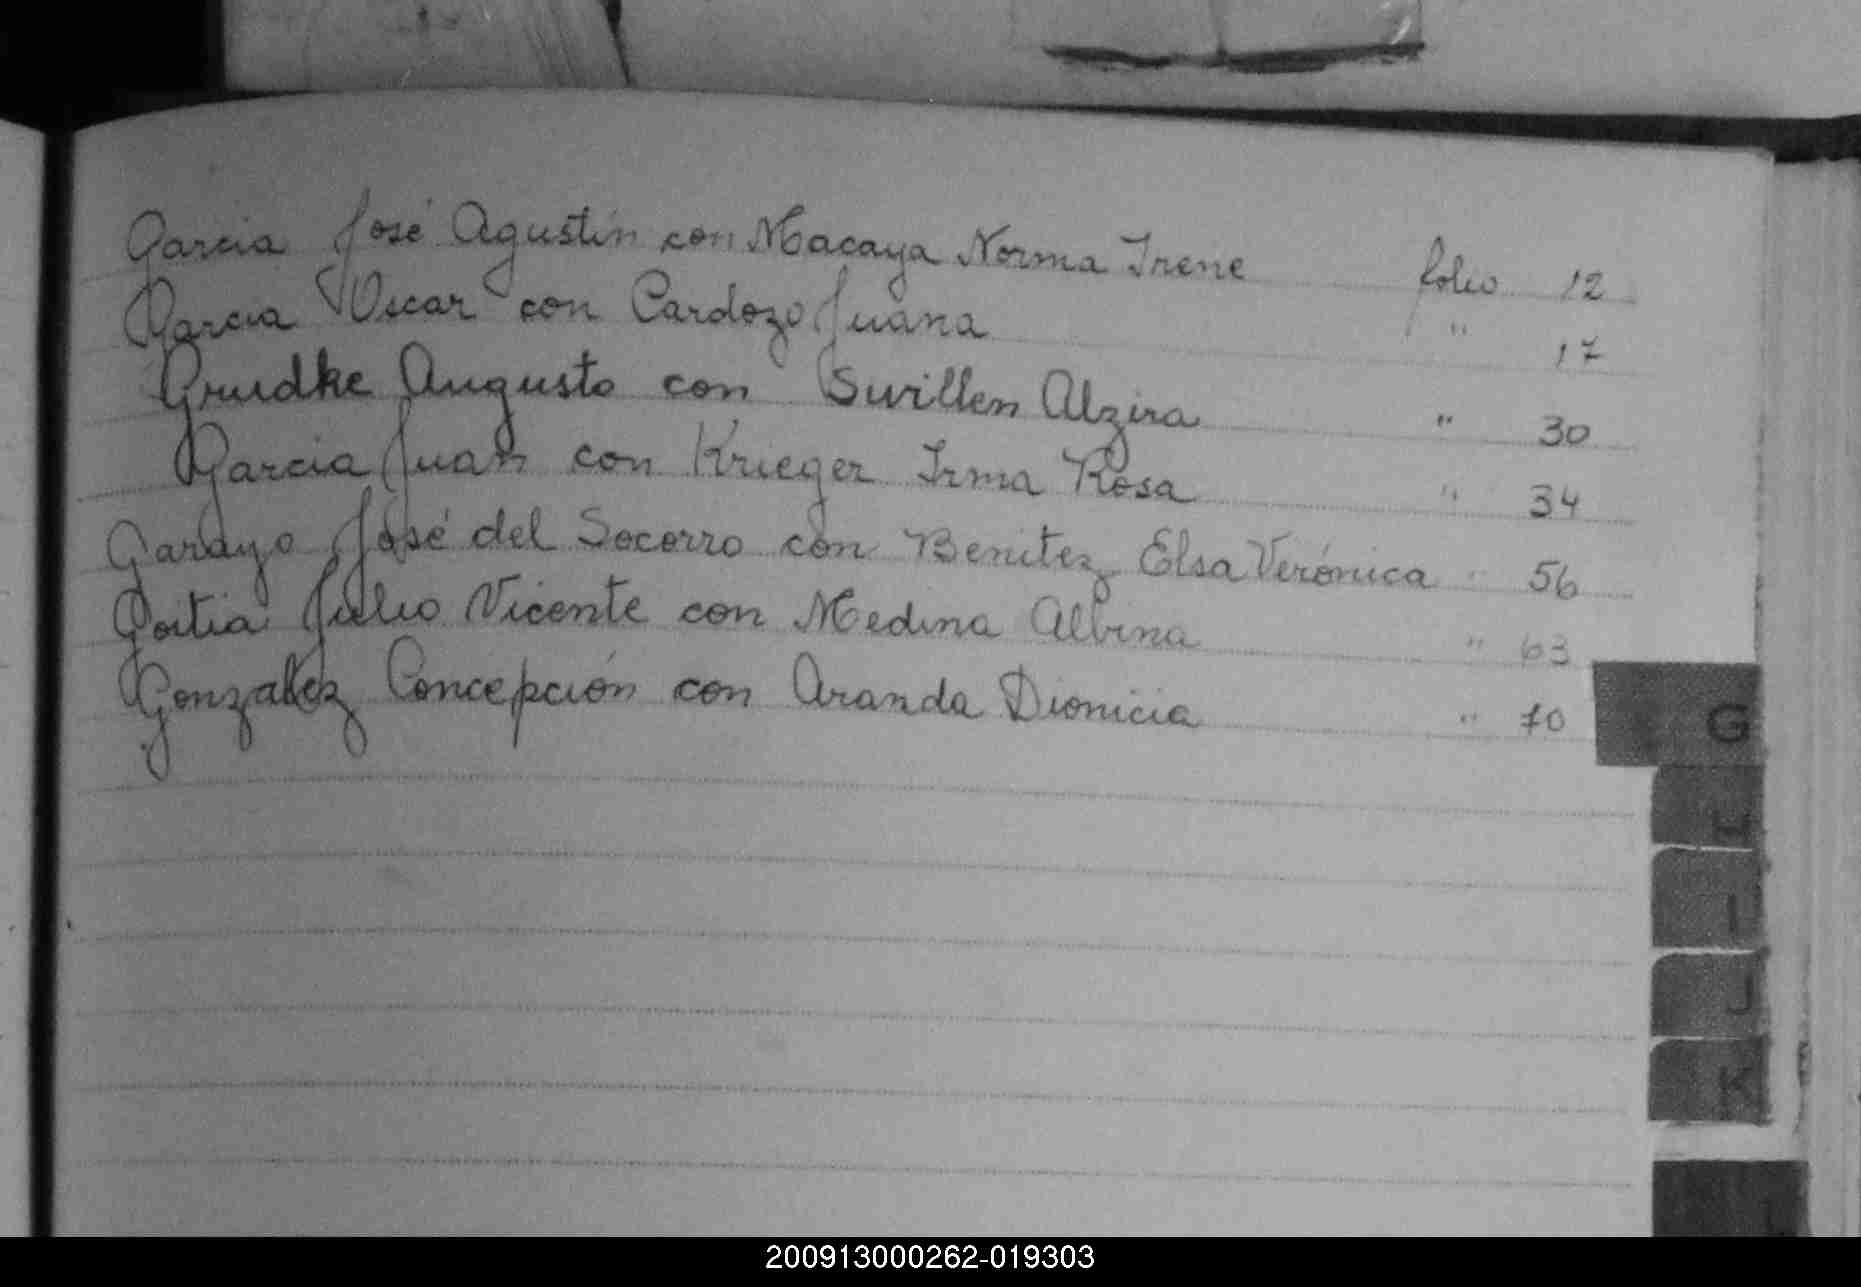 Garcia José Agustín con Macaya Norma Irene folio 12
Garcia Oscar con Cardozo Juana " 17
Grudke Augusto con Swillen Alzira " 30
Garcia Juan con Krieger Irma Rosa " 34
Garayo José del Socorro con Benitez Elsa Verónica " 56
Goitia Julio Vicente con Medina Albina " 63
Gonzalez Concepción con Aranda Dionicia " 70
G
H
I
J
K
200913000262-019303